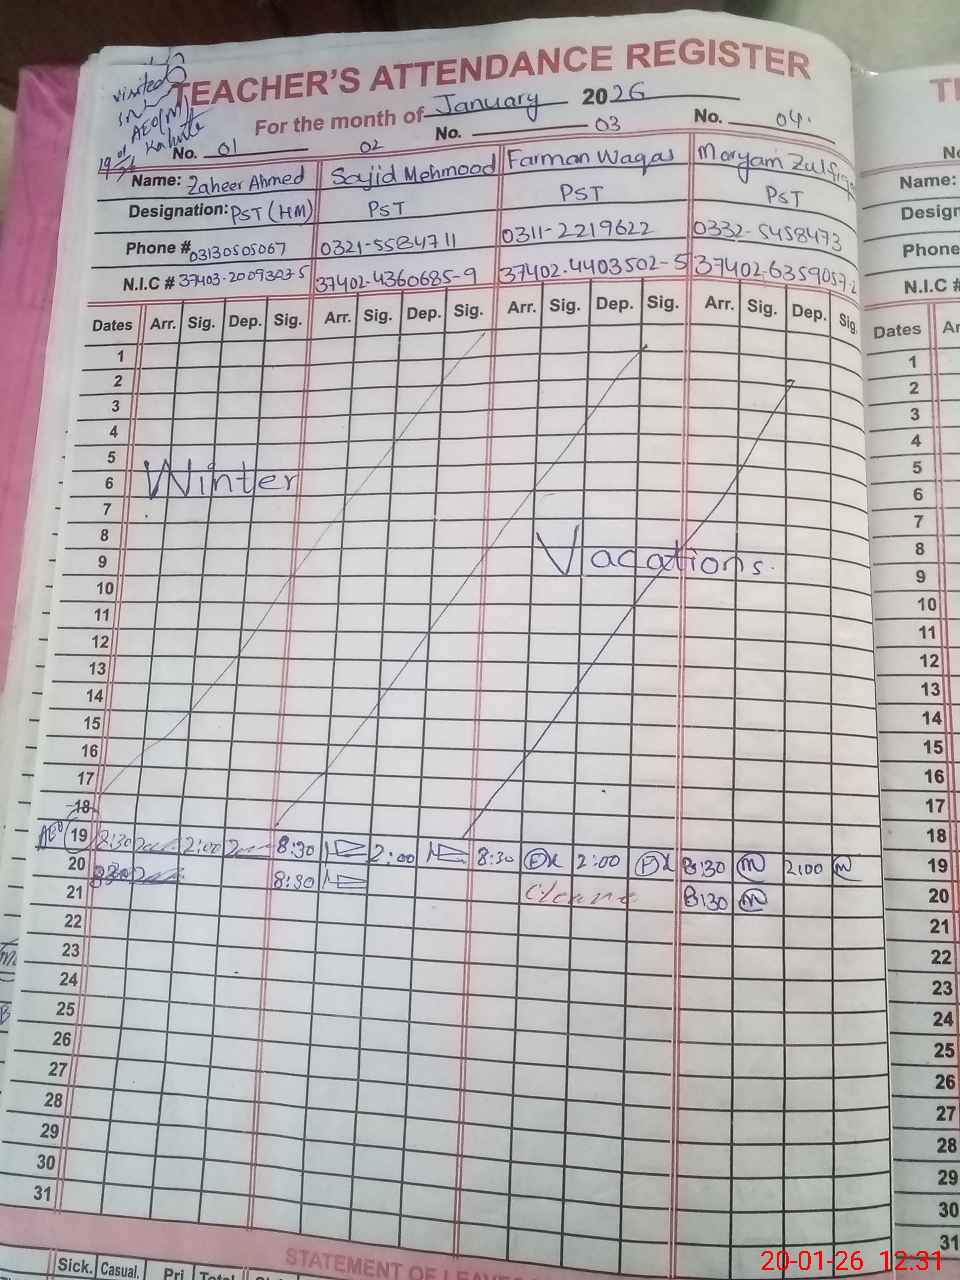 visited
AEO (M)
TEACHER'S ATTENDANCE REGISTER
For the month of January 2026
No. 01 02 No. 03 No. 04.
Name: Zaheer Ahmed Sajid Mehmood Farman Waqas Maryam
Designation: PST (HM) PST PST PST
Phone # 03130505067 0321-5584711 0311-2219622 0332-5458473
N.I.C # 37402-4360685-9 37402-4403502-5
Dates Arr. Sig. Dep. Sig. Arr. Sig. Dep. Sig. Arr. Sig. Dep. Sig. Arr. Sig. Dep. Sig.
1
2
3
4
5
6 Winter
7
8
9 Vacations.
10
11
12
13
14
15
16
17
18
AEO 19 8:30 2:00 8:30 2:00 8:30 2:00 8:30 2:00
20 8:30 8:30 8:30
21
22
23
24
25
26
27
28
29
30
31
STATEMENT OF
Sick. Casual. Pri Total
No
Name:
Design
Phone #
N.I.C #
Dates Ar
1
2
3
4
5
6
7
8
9
10
11
12
13
14
15
16
17
18
19
20
21
22
23
24
25
26
27
28
29
30
31
20-01-26 12:31